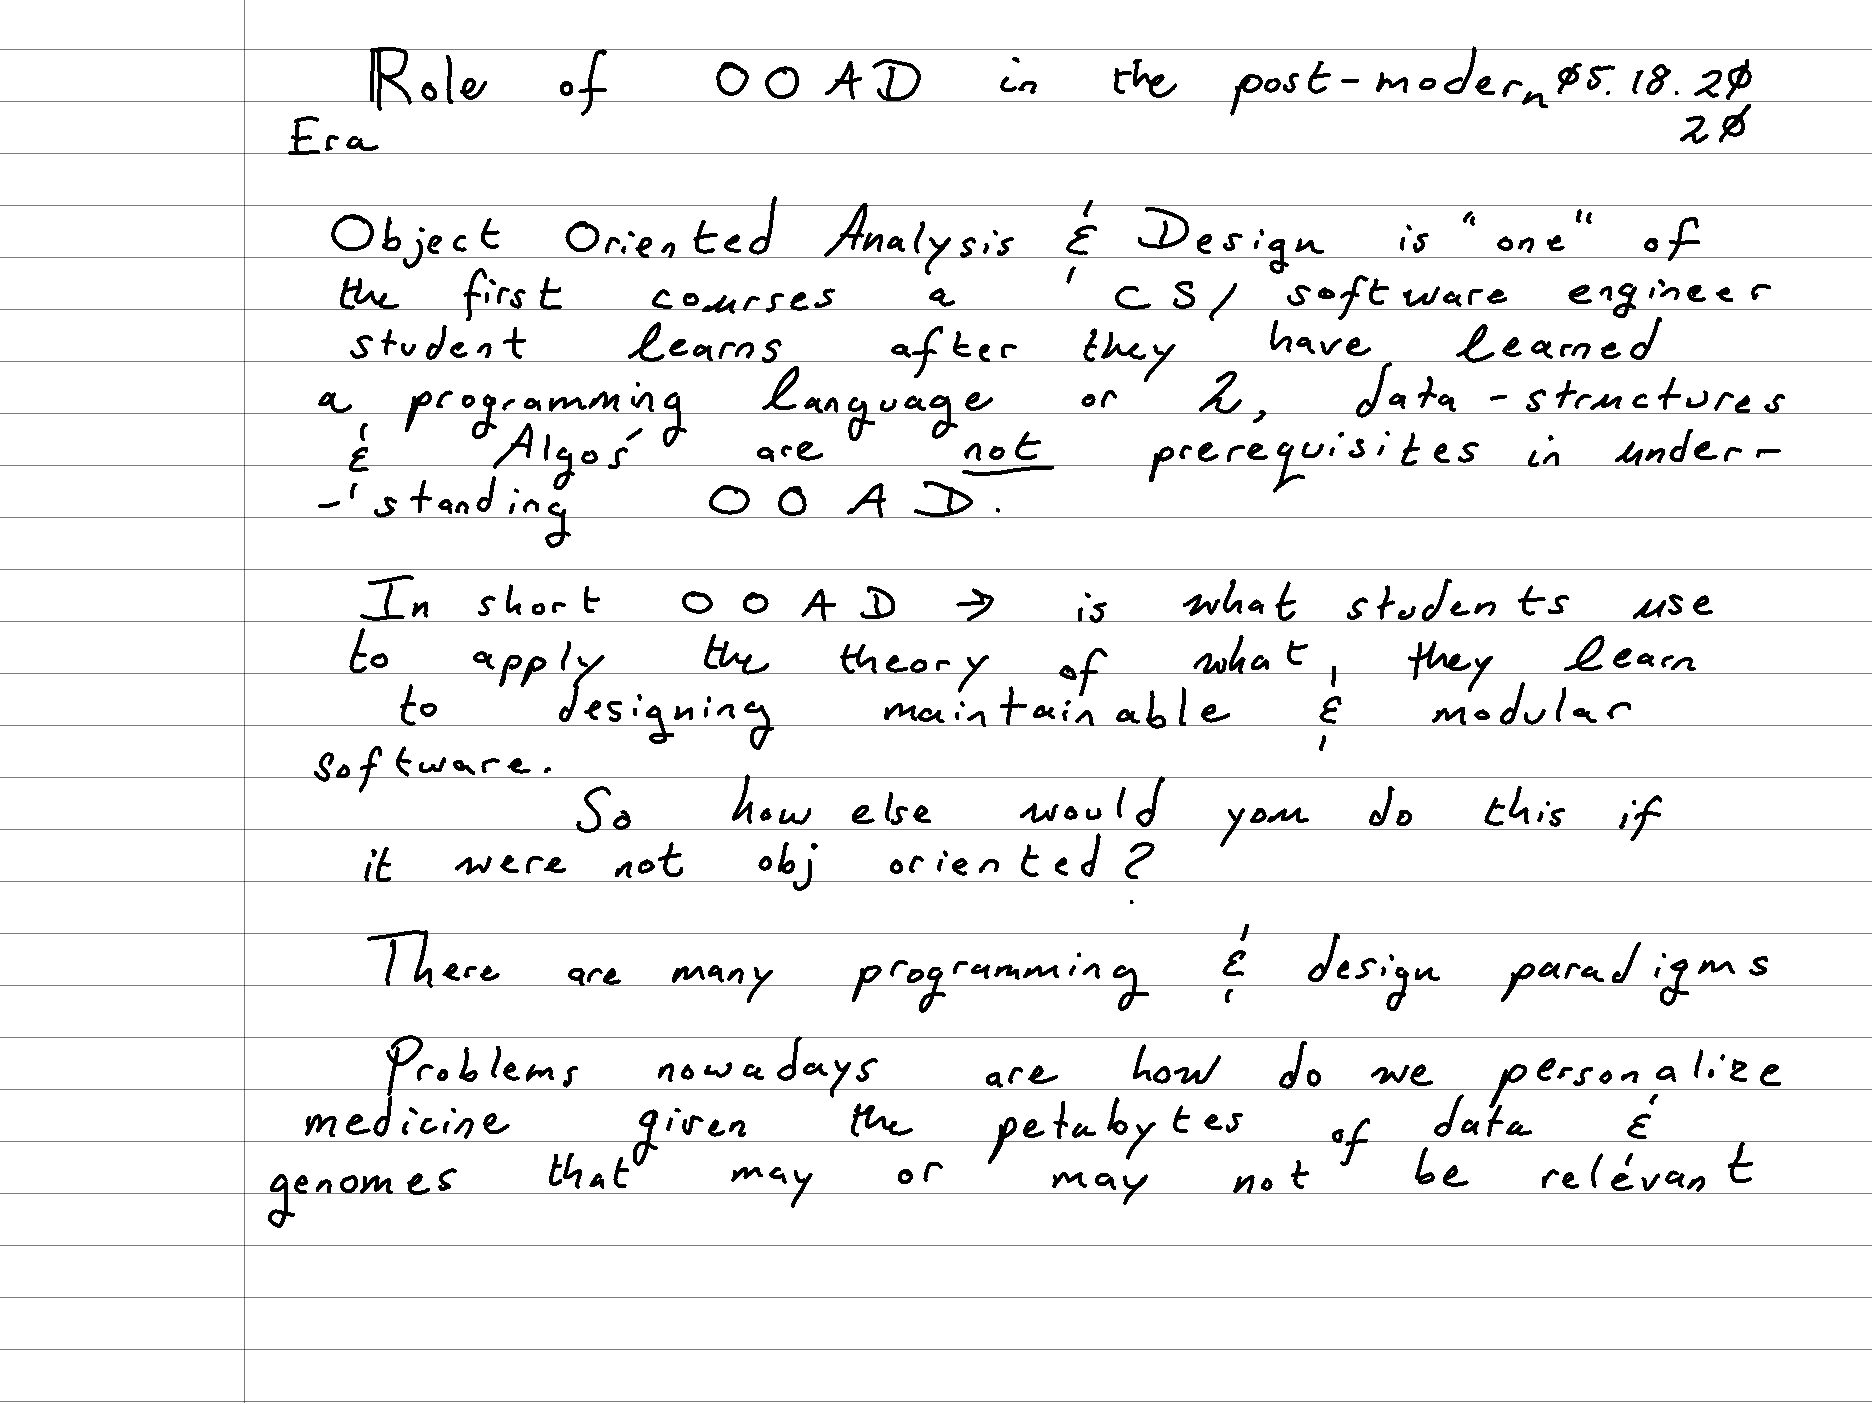 Role of OOAD in the post-modern 05.18.20
Era 20
Object Oriented Analysis & Design is "one" of
the first courses a CS/ software engineer
student learns after they have learned
a programming language or 2, data-structures
& Algos' are not prerequisites in under-
-standing OOAD.
In short OOAD → is what students use
to apply the theory of what they learn
to designing maintainable & modular
software.
So how else would you do this if
it were not obj oriented?
There are many programming & design paradigms
Problems nowadays are how do we personalize
medicine given the petabytes of data &
genomes that may or may not be relevant